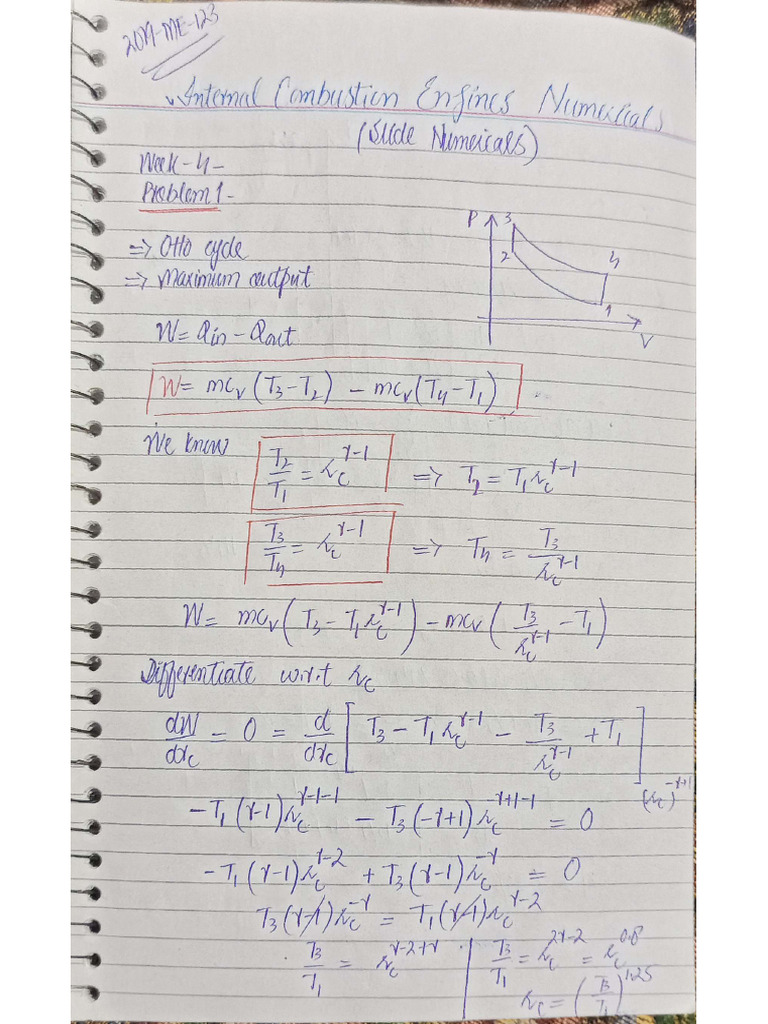 2021-ME-123
Internal Combustion Engines Numericals
(Slide Numericals)
Week-4-
Problem 1-
P 3
2 4
1
V
=> Otto cycle
=> Maximum output
W = Qin - Qout
W = mcv(T3 - T2) - mcv(T4 - T1)
We know T2/T1 = rc^(γ-1) => T2 = T1 rc^(γ-1)
T3/T4 = rc^(γ-1) => T4 = T3/rc^(γ-1)
W = mcv(T3 - T1 rc^(γ-1)) - mcv(T3/rc^(γ-1) - T1)
Differentiate w.r.t rc
dW/drc = 0 = d/drc [T3 - T1 rc^(γ-1) - T3/rc^(γ-1) + T1]
(rc)^(-γ+1)
-T1(γ-1)rc^(γ-1-1) - T3(-γ+1)rc^(-γ+1-1) = 0
-T1(γ-1)rc^(γ-2) + T3(γ-1)rc^(-γ) = 0
T3(γ-1)rc^(-γ) = T1(γ-1)rc^(γ-2)
T3/T1 = rc^(γ-2+γ) | T3/T1 = rc^(2γ-2) = rc^0.8
rc = (T3/T1)^1.25